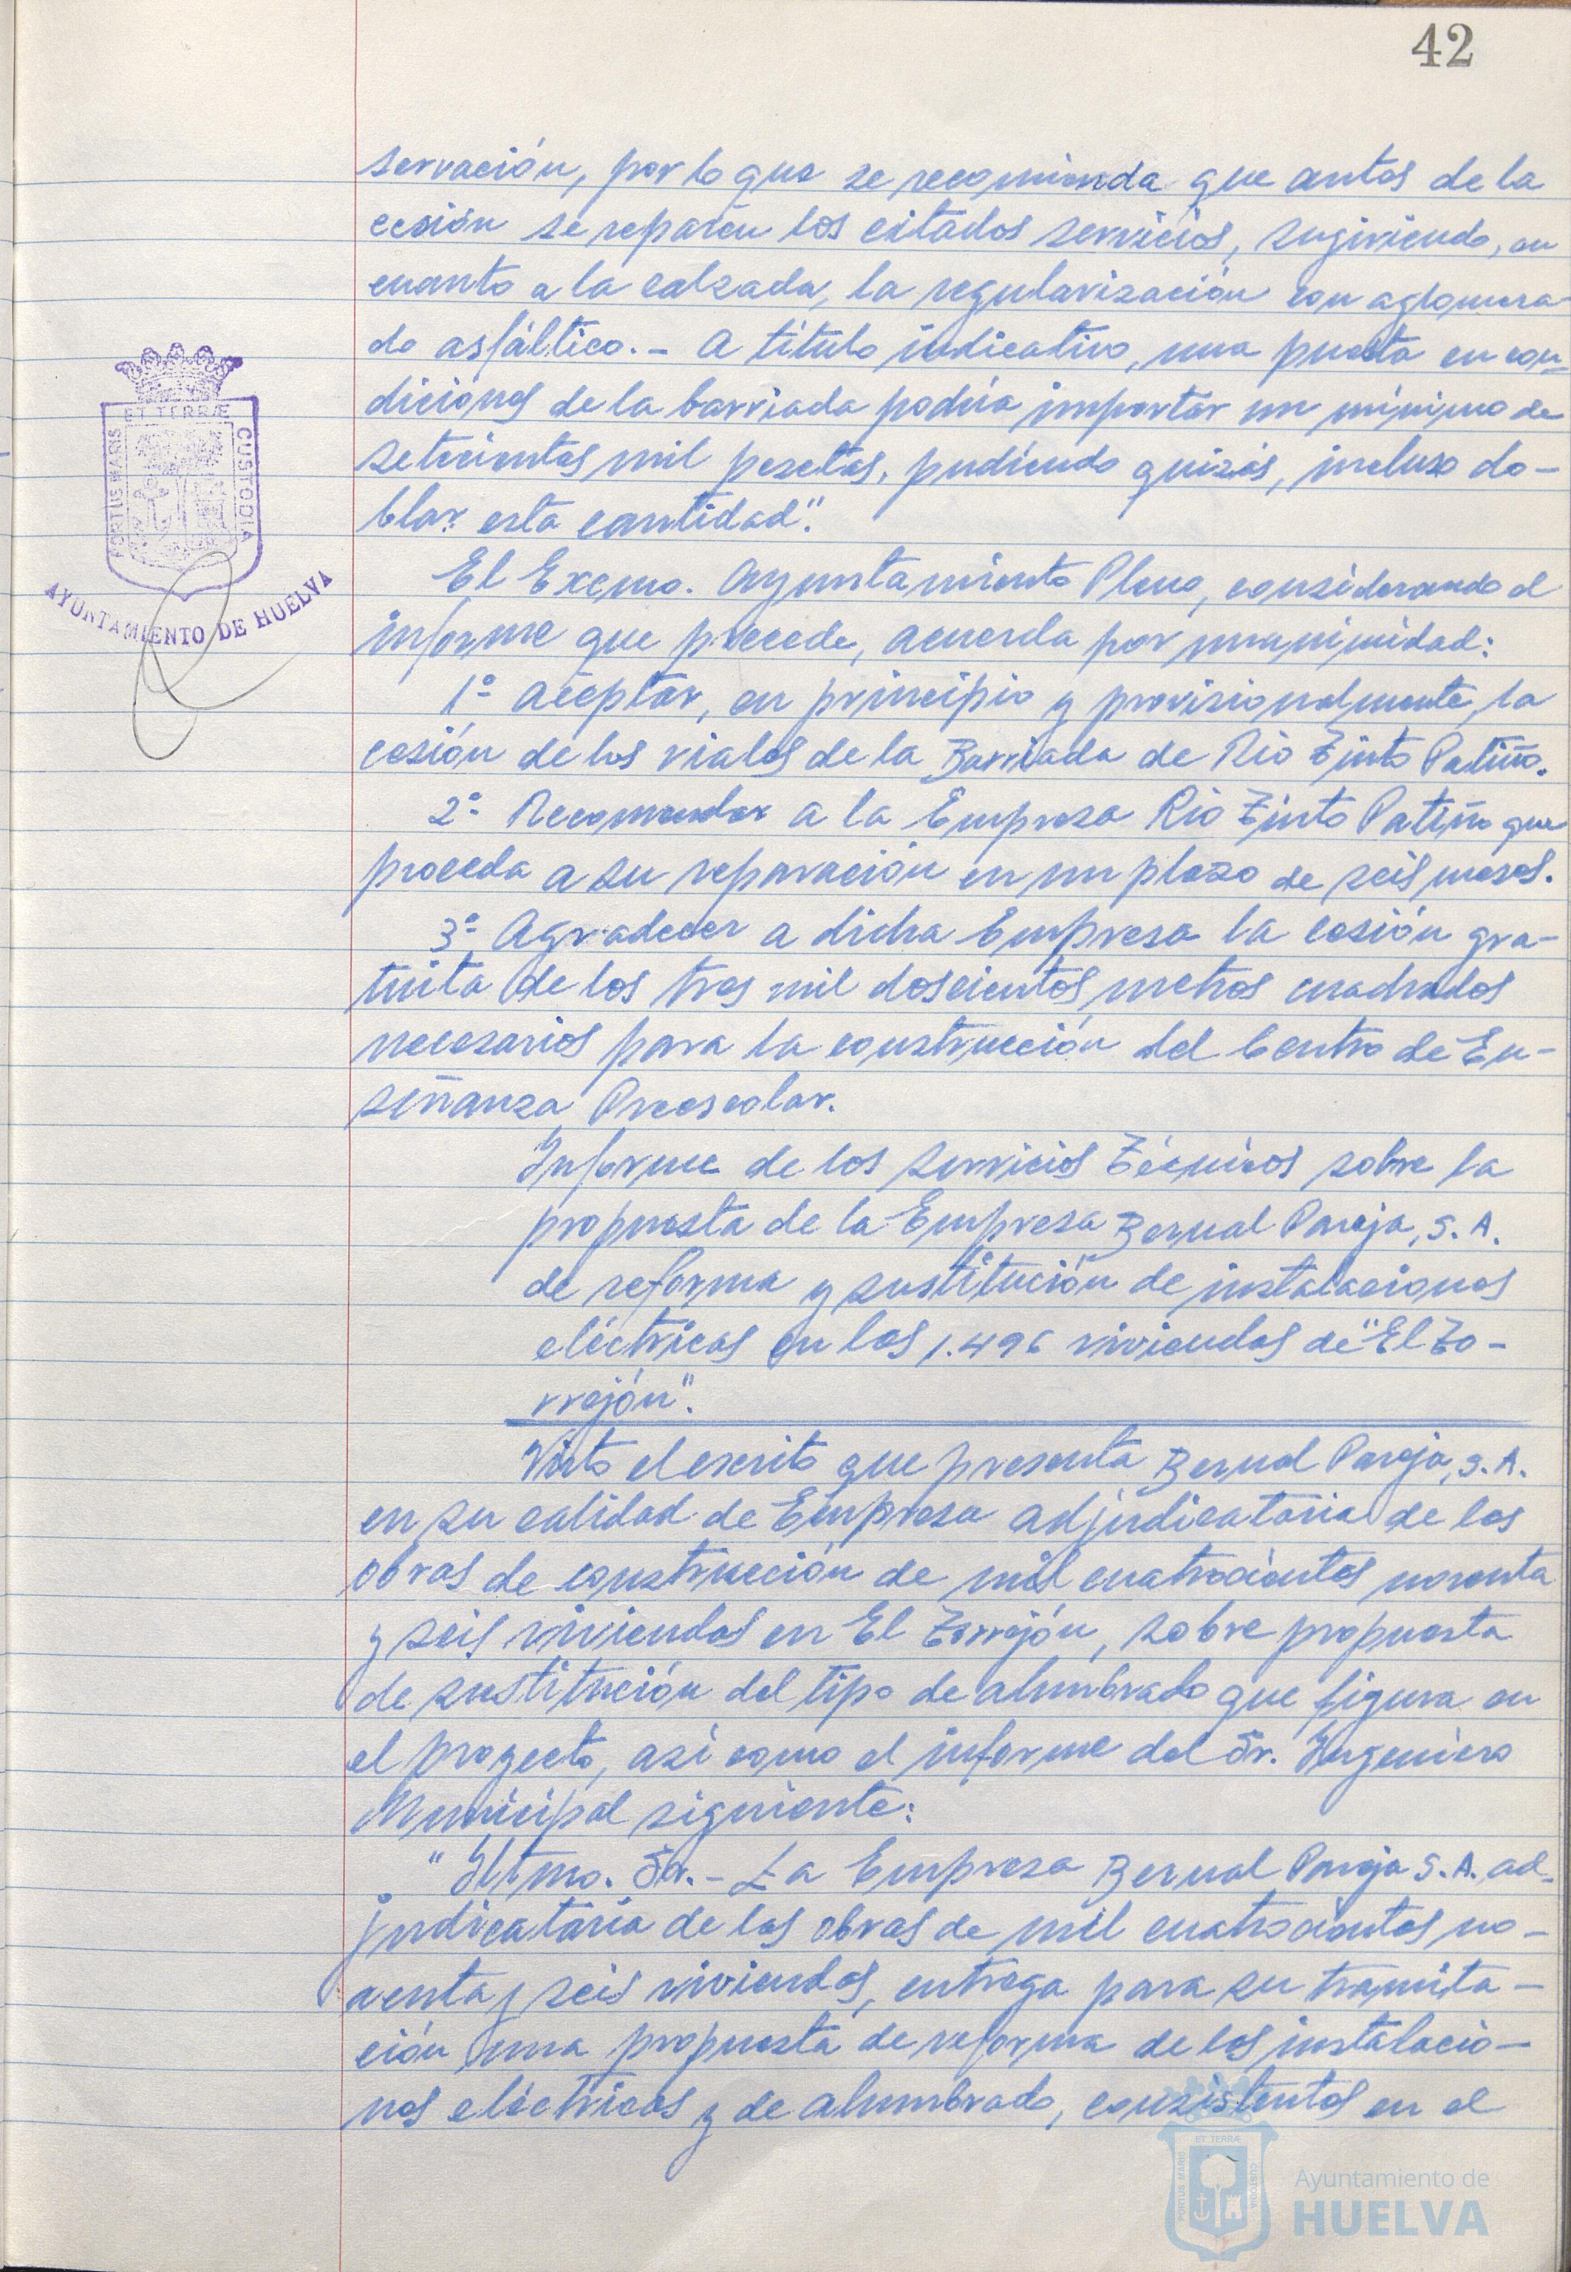 42
servación, por lo que se recomienda que antes de la
cesión se reparen los citados servicios, sugiriendo, en
cuanto a la calzada, la regularización con aglomera-
do asfáltico.- A título indicativo, una puesta en con-
diciones de la barriada podría importar un mínimo de
setecientas mil pesetas, pudiendo quizás, incluso do-
blar esta cantidad".
El Excmo. Ayuntamiento Pleno, considerando el
informe que precede, acuerda por unanimidad:
1º Aceptar, en principio y provisionalmente, la
cesión de los viales de la Barriada de Rio Tinto Patiño.
2º Recomendar a la Empresa Rio Tinto Patiño que
proceda a su reparación en un plazo de seis meses.
3º Agradecer a dicha Empresa la cesión gra-
tuita de los tres mil doscientos metros cuadrados
necesarios para la construcción del Centro de En-
señanza Preescolar.
Informe de los Servicios Técnicos sobre la
propuesta de la Empresa Bernal Pareja, S.A.
de reforma y sustitución de instalaciones
eléctricas en las 1.496 viviendas de "El To-
rrejón".
Visto el escrito que presenta Bernal Pareja, S.A.
en su calidad de Empresa adjudicataria de las
obras de construcción de mil cuatrocientas noventa
y seis viviendas en El Torrejón, sobre propuesta
de sustitución del tipo de alumbrado que figura en
el proyecto, así como el informe del Sr. Ingeniero
Municipal siguiente:
"Iltmo. Sr.- La Empresa Bernal Pareja S.A. ad-
judicataria de las obras de mil cuatrocientas no-
venta y seis viviendas, entrega para su tramita-
ción una propuesta de reforma de las instalacio-
nes eléctricas y de alumbrado, consistentes en el
PORTUS MARIS
ET TERRÆ
CUSTODIA
AYUNTAMIENTO DE HUELVA
PORTUS MARIS
ET TERRÆ
CUSTODIA
Ayuntamiento de
HUELVA